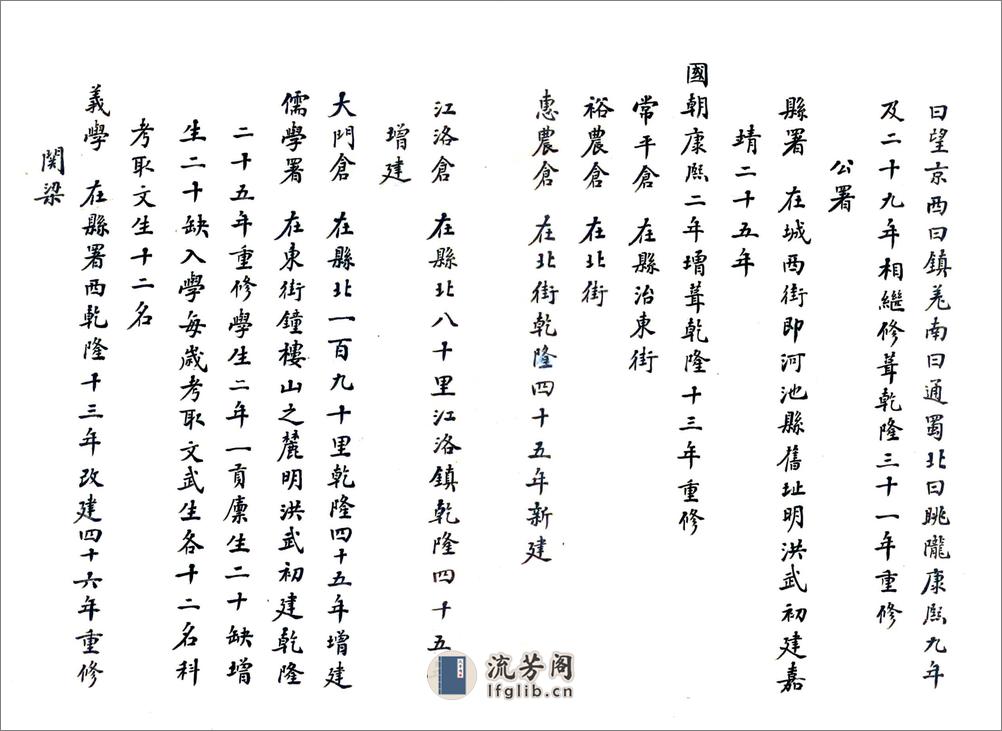 曰望京西曰鎮羌南曰通蜀北曰眺隴康熙九年
及二十九年相繼修葺乾隆三十一年重修
公署
縣署 在城西街即河池縣舊址明洪武初建嘉
靖二十五年
國朝康熙二年增葺乾隆十三年重修
常平倉 在縣治東街
裕農倉 在北街
惠農倉 在北街乾隆四十五年新建
江洛倉 在縣北八十里江洛鎮乾隆四十五
增建
大門倉 在縣北一百九十里乾隆四十五年增建
儒學署 在東街鐘樓山之麓明洪武初建乾隆
二十五年重修學生二年一貢廩生二十缺增
生二十缺入學每歲考取文武生各十二名科
考取文生十二名
義學 在縣署西乾隆十三年改建四十六年重修
関梁
流芳阁
lfglib.cn